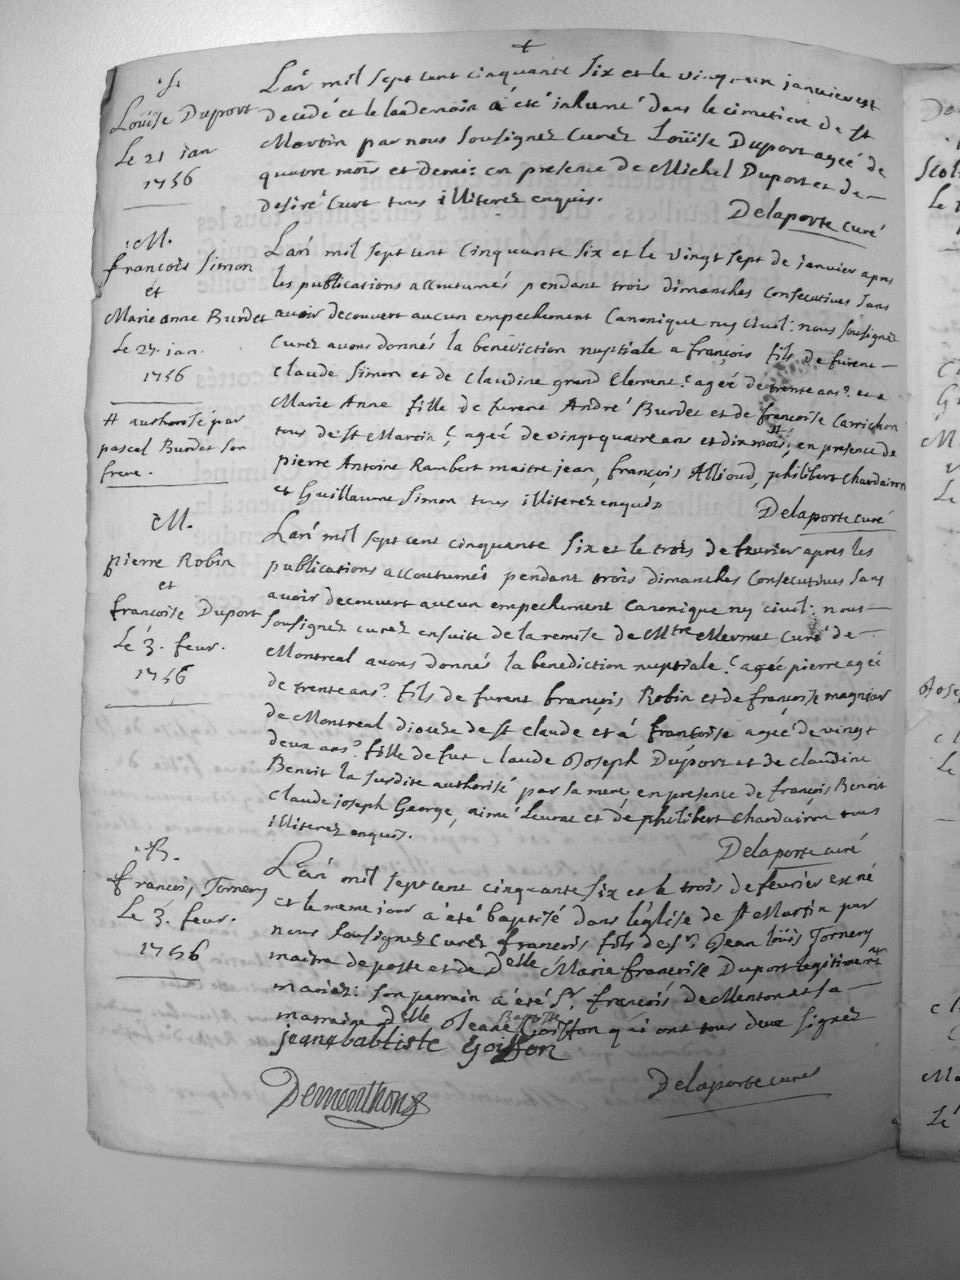 S.
Loüise Duport
Le 21 jan
1756
L'an mil sept cent cinquante six et le vingt un janvier est
decedé et le lademain a été inhumé dans le cimetiere de st
Martin par nous soussignez curez Loüise Duport ageé de
quatre mois et demi: en presence de Michel Duport et de
desiré Curt tous illiterez enquis.
Delaporte curé
M.
françois Simon
et
Marie anne Burdet
Le 27. jan.
1756
# authorisé par
pascal Burdet son
frere.
L'an mil sept cent cinquante six et le vingt sept de janvier apres
les publications accoutumés pendant trois dimanches consecutives sans
avoir decouvert aucun empechement canonique ny civil: nous sousignez
curez avons donnés la benediction nuptiale a françois fils de furent
claude Simon et de claudine grand clement ageé de trente ans et a
Marie Anne fille de furent André Burdet et de françoise Carrichon
tous de st Martin ageé de vingt quatre ans et dix mois # en presence de
pierre Antoine Rambert maitre jean, françois Allioud, philibert chardairon
et Guillaume Simon tous illiterez enquis
Delaporte curé
M.
pierre Robin
et
françoise Duport
Le 3. feur.
1756
L'an mil sept cent cinquante six et le trois de fevrier apres les
publications accoutumés pendant trois dimanches consecutives sans
avoir decouvert aucun empechement canonique ny civil: nous
sousignez curez ensuite de la remise de Mtre Mermet curé de
Montreal avons donnés la benediction nuptiale a pierre ageé
de trente ans fils de furent françois Robin et de françoise magnier
de Montreal dioceze de st claude et á françoise ageé de vingt
deux ans fille de fut claude Joseph Duport et de claudine
Benoit la susdite authorisé par sa mere en presence de françois Benoit
claude joseph George, aimé Levrat et de philibert chardairon tous
illiterez enquis.
Delaporte curé
B.
françois Tornery
Le 3. feur.
1756
L'an mil sept cent cinquante six et le trois de février est né
et le meme jour a été baptisé dans l'église de st Martin par
nous sousignez curez françois fils de sr. Jean loüis Tornery
maitre de poste et de Delle Marie françoise Duport legitimemt
mariez: son parrain a été sr. françois deMenton et sa
marraine Delle Jeane Baptiste Goiffon qui ont tous deux signez
jeane babtiste Goiffon
Demonthonx
Delaporte curé